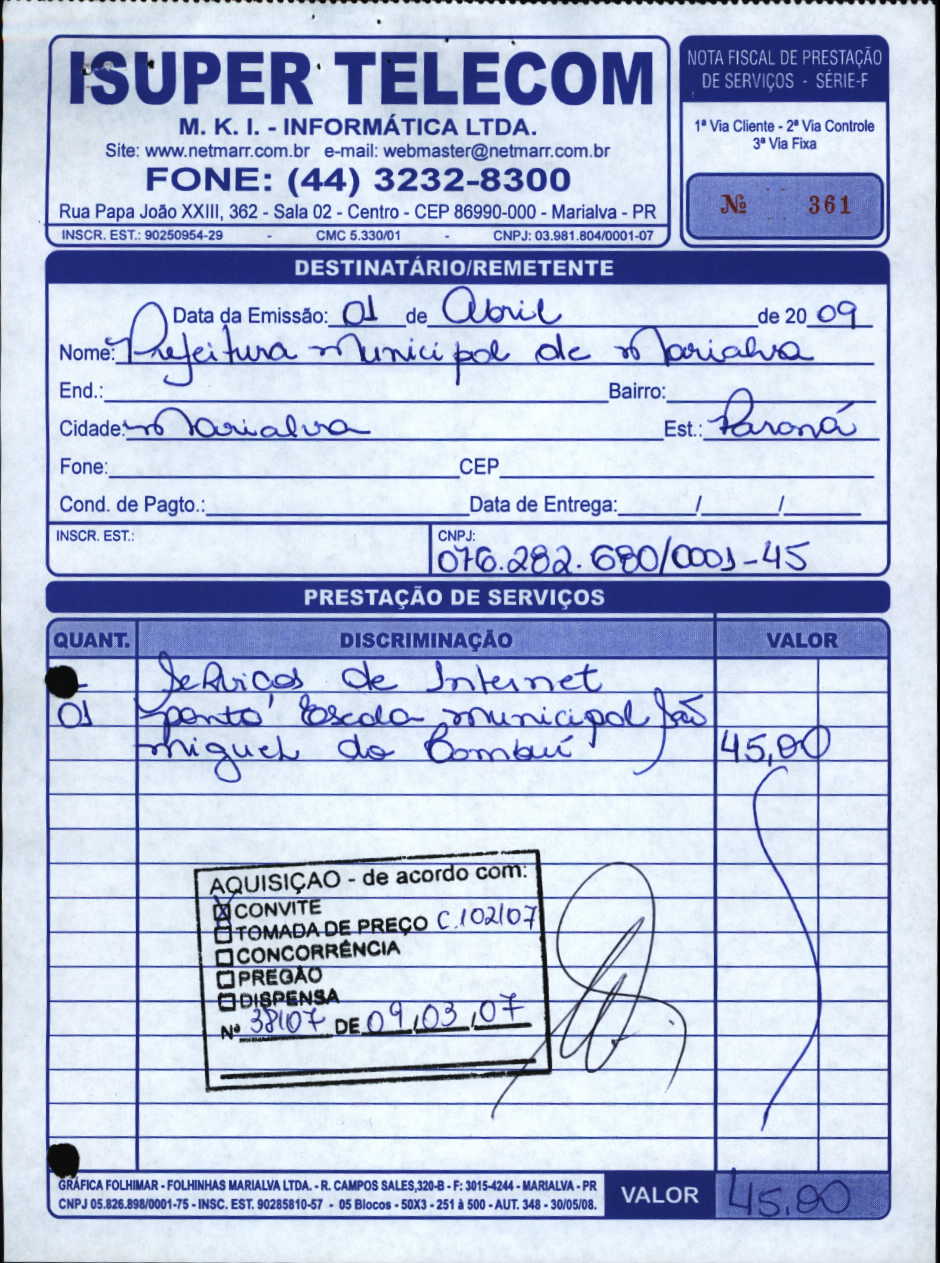 ISUPER TELECOM
M. K. I. - INFORMÁTICA LTDA.
Site: www.netmarr.com.br e-mail: webmaster@netmarr.com.br
FONE: (44) 3232-8300
Rua Papa João XXIII, 362 - Sala 02 - Centro - CEP 86990-000 - Marialva - PR
INSCR. EST.: 90250954-29 - CMC 5.330/01 - CNPJ: 03.981.804/0001-07
NOTA FISCAL DE PRESTAÇÃO
DE SERVIÇOS - SÉRIE-F
1ª Via Cliente - 2ª Via Controle
3ª Via Fixa
Nº 361
DESTINATÁRIO/REMETENTE
Data da Emissão: 01 de Abril de 20 09
Nome: Prefeitura Municipal de Marialva
End.: Bairro:
Cidade: Marialva Est.: Paraná
Fone: CEP
Cond. de Pagto.: Data de Entrega: / /
INSCR. EST.: CNPJ:
076.282.680/0001-45
PRESTAÇÃO DE SERVIÇOS
QUANT. DISCRIMINAÇÃO VALOR
Serviços de Internet
01 ponto Escola municipal São
Miguel do Cambuí 45,00
AQUISIÇAO - de acordo com:
☒ CONVITE
☐ TOMADA DE PREÇO C.102107
☐ CONCORRÊNCIA
☐ PREGÃO
☐ DISPENSA
Nº 38107 DE 09 / 03 / 07
GRÁFICA FOLHIMAR - FOLHINHAS MARIALVA LTDA. - R. CAMPOS SALES,320-B - F: 3015-4244 - MARIALVA - PR
CNPJ 05.826.898/0001-75 - INSC. EST. 90285810-57 - 05 Blocos - 50X3 - 251 à 500 - AUT. 348 - 30/05/08.
VALOR 45,00